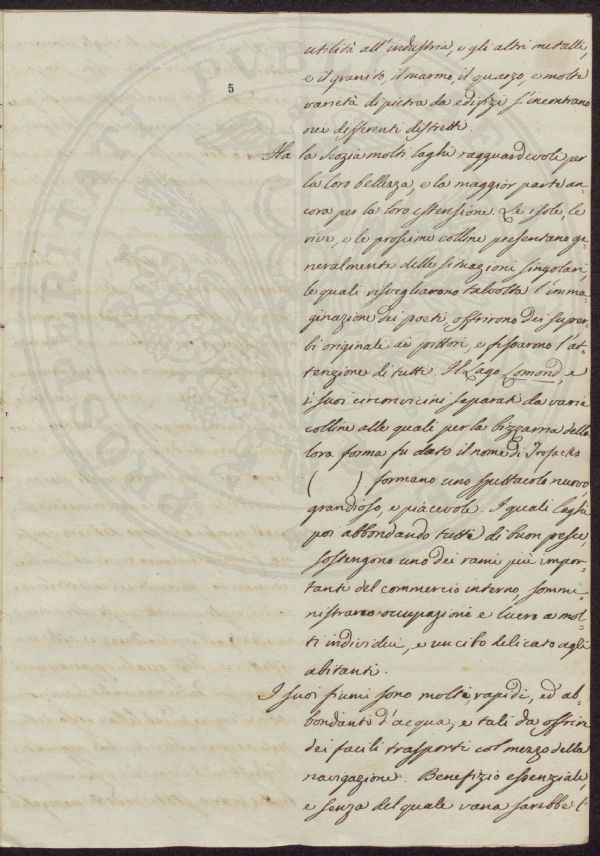 5
utilità all'industria, e gli altri metalli,
e il granito, il marmo, il quarzo, e molte
varietà di pietra da edifizj s'incontrano
nei differenti distretti.
Ha la Scozia molti laghi ragguardevoli per
la loro bellezza, e la maggior parte an-
cora per la loro estensione. Le isole, le
rive, e le prossime colline presentano ge-
neralmente delle situazioni singolari,
le quali risvegliarono talvolta l'imma-
ginazione dei poeti, offrirono dei super-
bi originali ai pittori, e fissarono l'at-
tenzione di tutti. Il Lago Lomond, e
i suoi circonvicini separati da varie
colline alle quali per la bizzarria della
loro forma fu dato il nome di Trosacks
( ) formano uno spettacolo nuovo,
grandioso, e piacevole. I quali laghi
poi abbondando tutti di buon pesce,
sostengono uno dei rami più impor-
tanti del commercio interno, sommi-
nistrano occupazione e lucro a mol-
ti individui, e un cibo delicato agli
abitanti.
I suoi fiumi sono molti, rapidi, ed ab-
bondanti d'acqua, e tali da offrire
dei facili trasporti col mezzo della
navigazione. Benefizio essenziale,
e senza del quale vana sarebbe l'
PROSPERITATI PVBLICAE